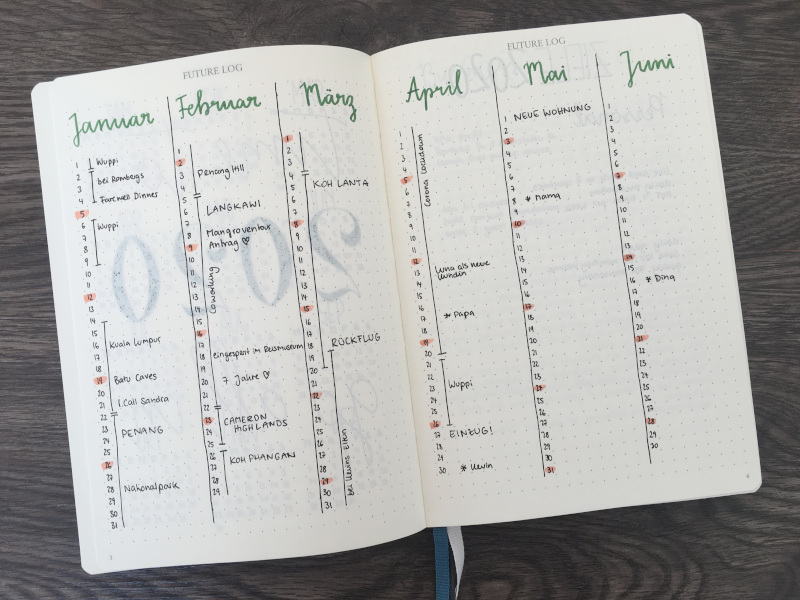 FUTURE LOG
Januar
Februar
März
1
2
3
4
5
6
7
8
9
10
11
12
13
14
15
16
17
18
19
20
21
22
23
24
25
26
27
28
29
30
31
Wuppi
bei Rombergs
Farewell Dinner
Wuppi
Kuala Lumpur
Batu Caves
1. Call Sandra
PENANG
Nationalpark
1
2
3
4
5
6
7
8
9
10
11
12
13
14
15
16
17
18
19
20
21
22
23
24
25
26
27
28
29
Penang Hill
LANGKAWI
Mangroventour
Antrag ♡
Coworking
eingesperrt im Reismuseum
7 Jahre ♡
CAMERON
HIGHLANDS
KOH PHANGAN
1
2
3
4
5
6
7
8
9
10
11
12
13
14
15
16
17
18
19
20
21
22
23
24
25
26
27
28
29
30
31
KOH LANTA
RÜCKFLUG
bei Kevins Eltern
2020
FUTURE LOG
April
Mai
Juni
1
2
3
4
5
6
7
8
9
10
11
12
13
14
15
16
17
18
19
20
21
22
23
24
25
26
27
28
29
30
Corona Lockdown
Luna als neue
Kundin
* Papa
Wuppi
EINZUG!
* Kevin
1
2
3
4
5
6
7
8
9
10
11
12
13
14
15
16
17
18
19
20
21
22
23
24
25
26
27
28
29
30
31
NEUE WOHNUNG
* Mama
1
2
3
4
5
6
7
8
9
10
11
12
13
14
15
16
17
18
19
20
21
22
23
24
25
26
27
28
29
30
* Dina